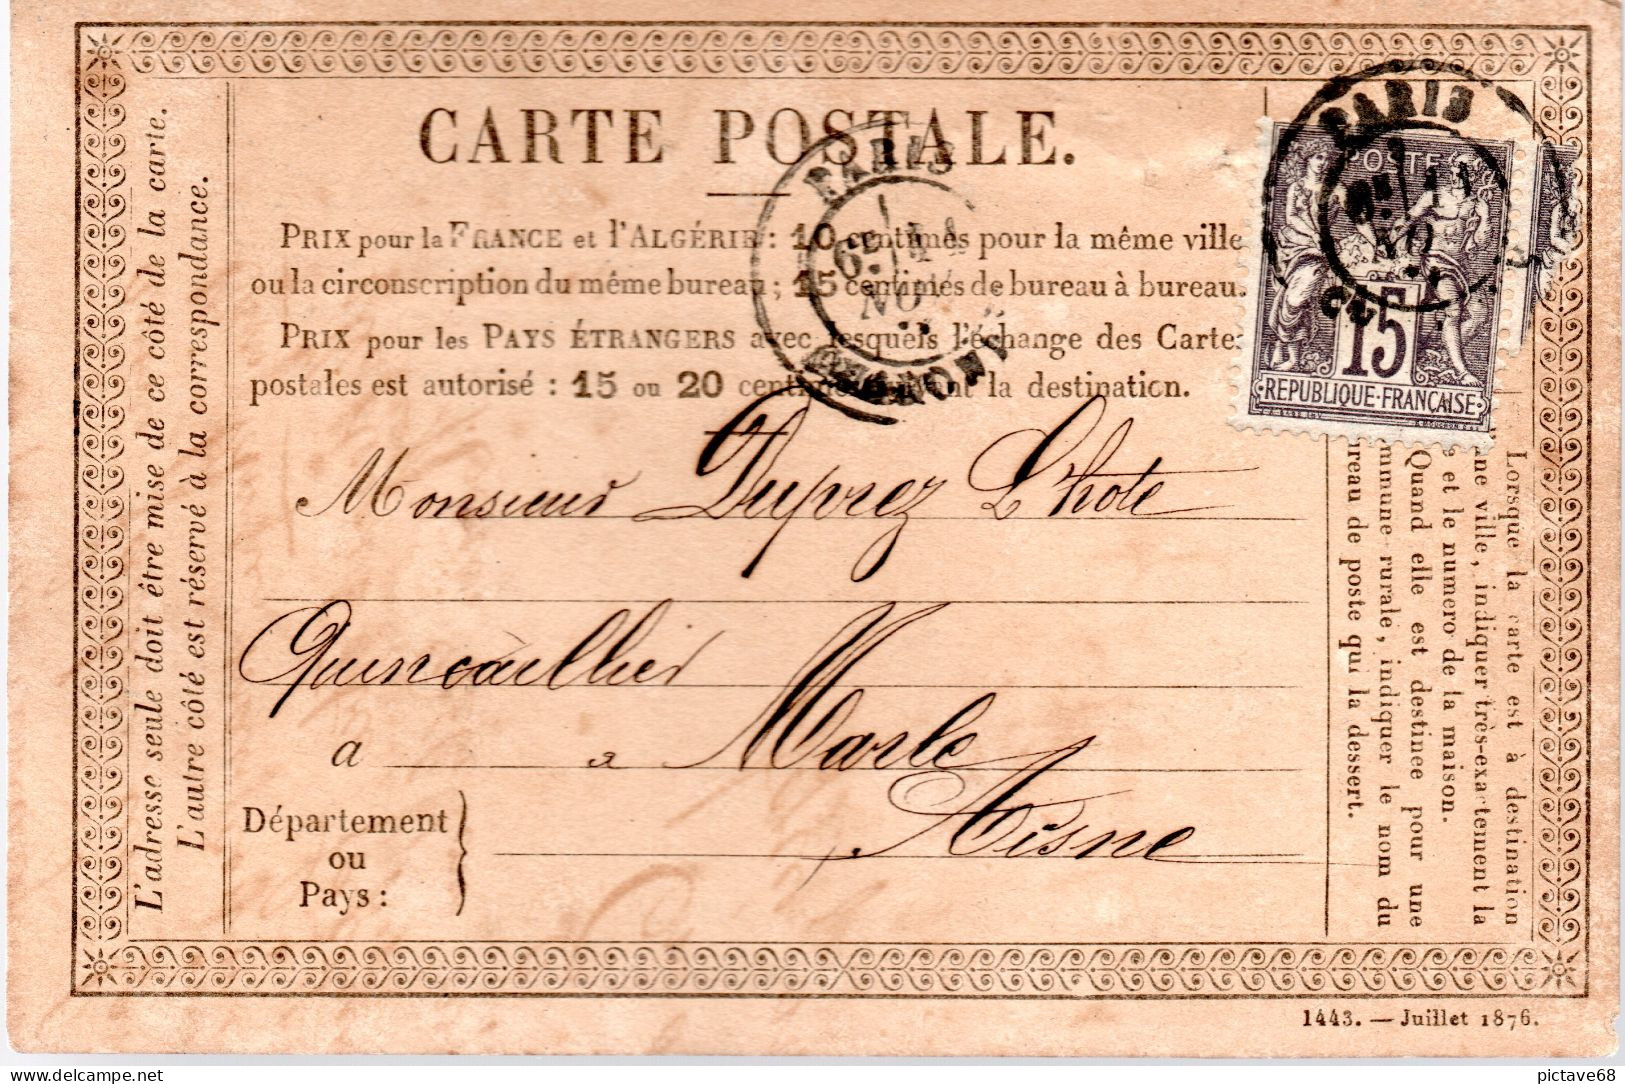 CARTE POSTALE.
PRIX pour la FRANCE et l'ALGÉRIE : 10 centimes pour la même ville
ou la circonscription du même bureau ; 15 centimes de bureau à bureau.
PRIX pour les PAYS ÉTRANGERS avec lesquels l'échange des Cartes
postales est autorisé : 15 ou 20 centimes suivant la destination.
L'adresse seule doit être mise de ce côté de la carte.
L'autre côté est réservé à la correspondance.
PARIS
6E
NO
PARIS
NO
POSTE
15
REPUBLIQUE·FRANÇAISE
Monsieur Duprez Lhote
Quincaillier
a à Marle
Aisne
Département
ou
Pays :
Lorsque la carte est à destination
une ville, indiquer très-exactement la
et le numero de la maison.
Quand elle est destinée pour une
mmune rurale, indiquer le nom du
reau de poste qui la dessert.
1443. — Juillet 1876.
delcampe.net
pictave68